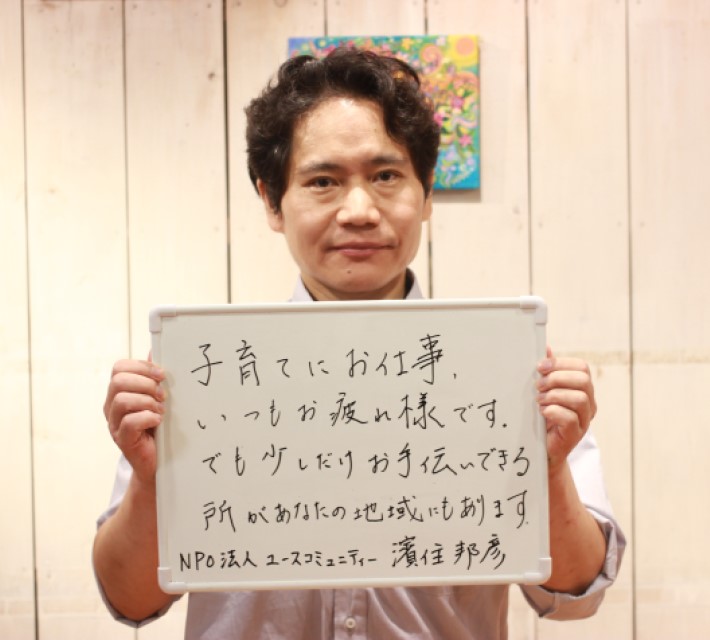 子育てにお仕事、
いつもお疲れ様です。
でも少しだけお手伝いできる
所があなたの地域にもあります。
NPO法人 ユースコミュニティー 濱住邦彦